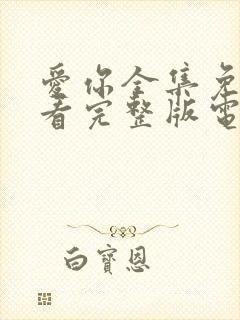 愛你全集免
看完整版電
白寶恩